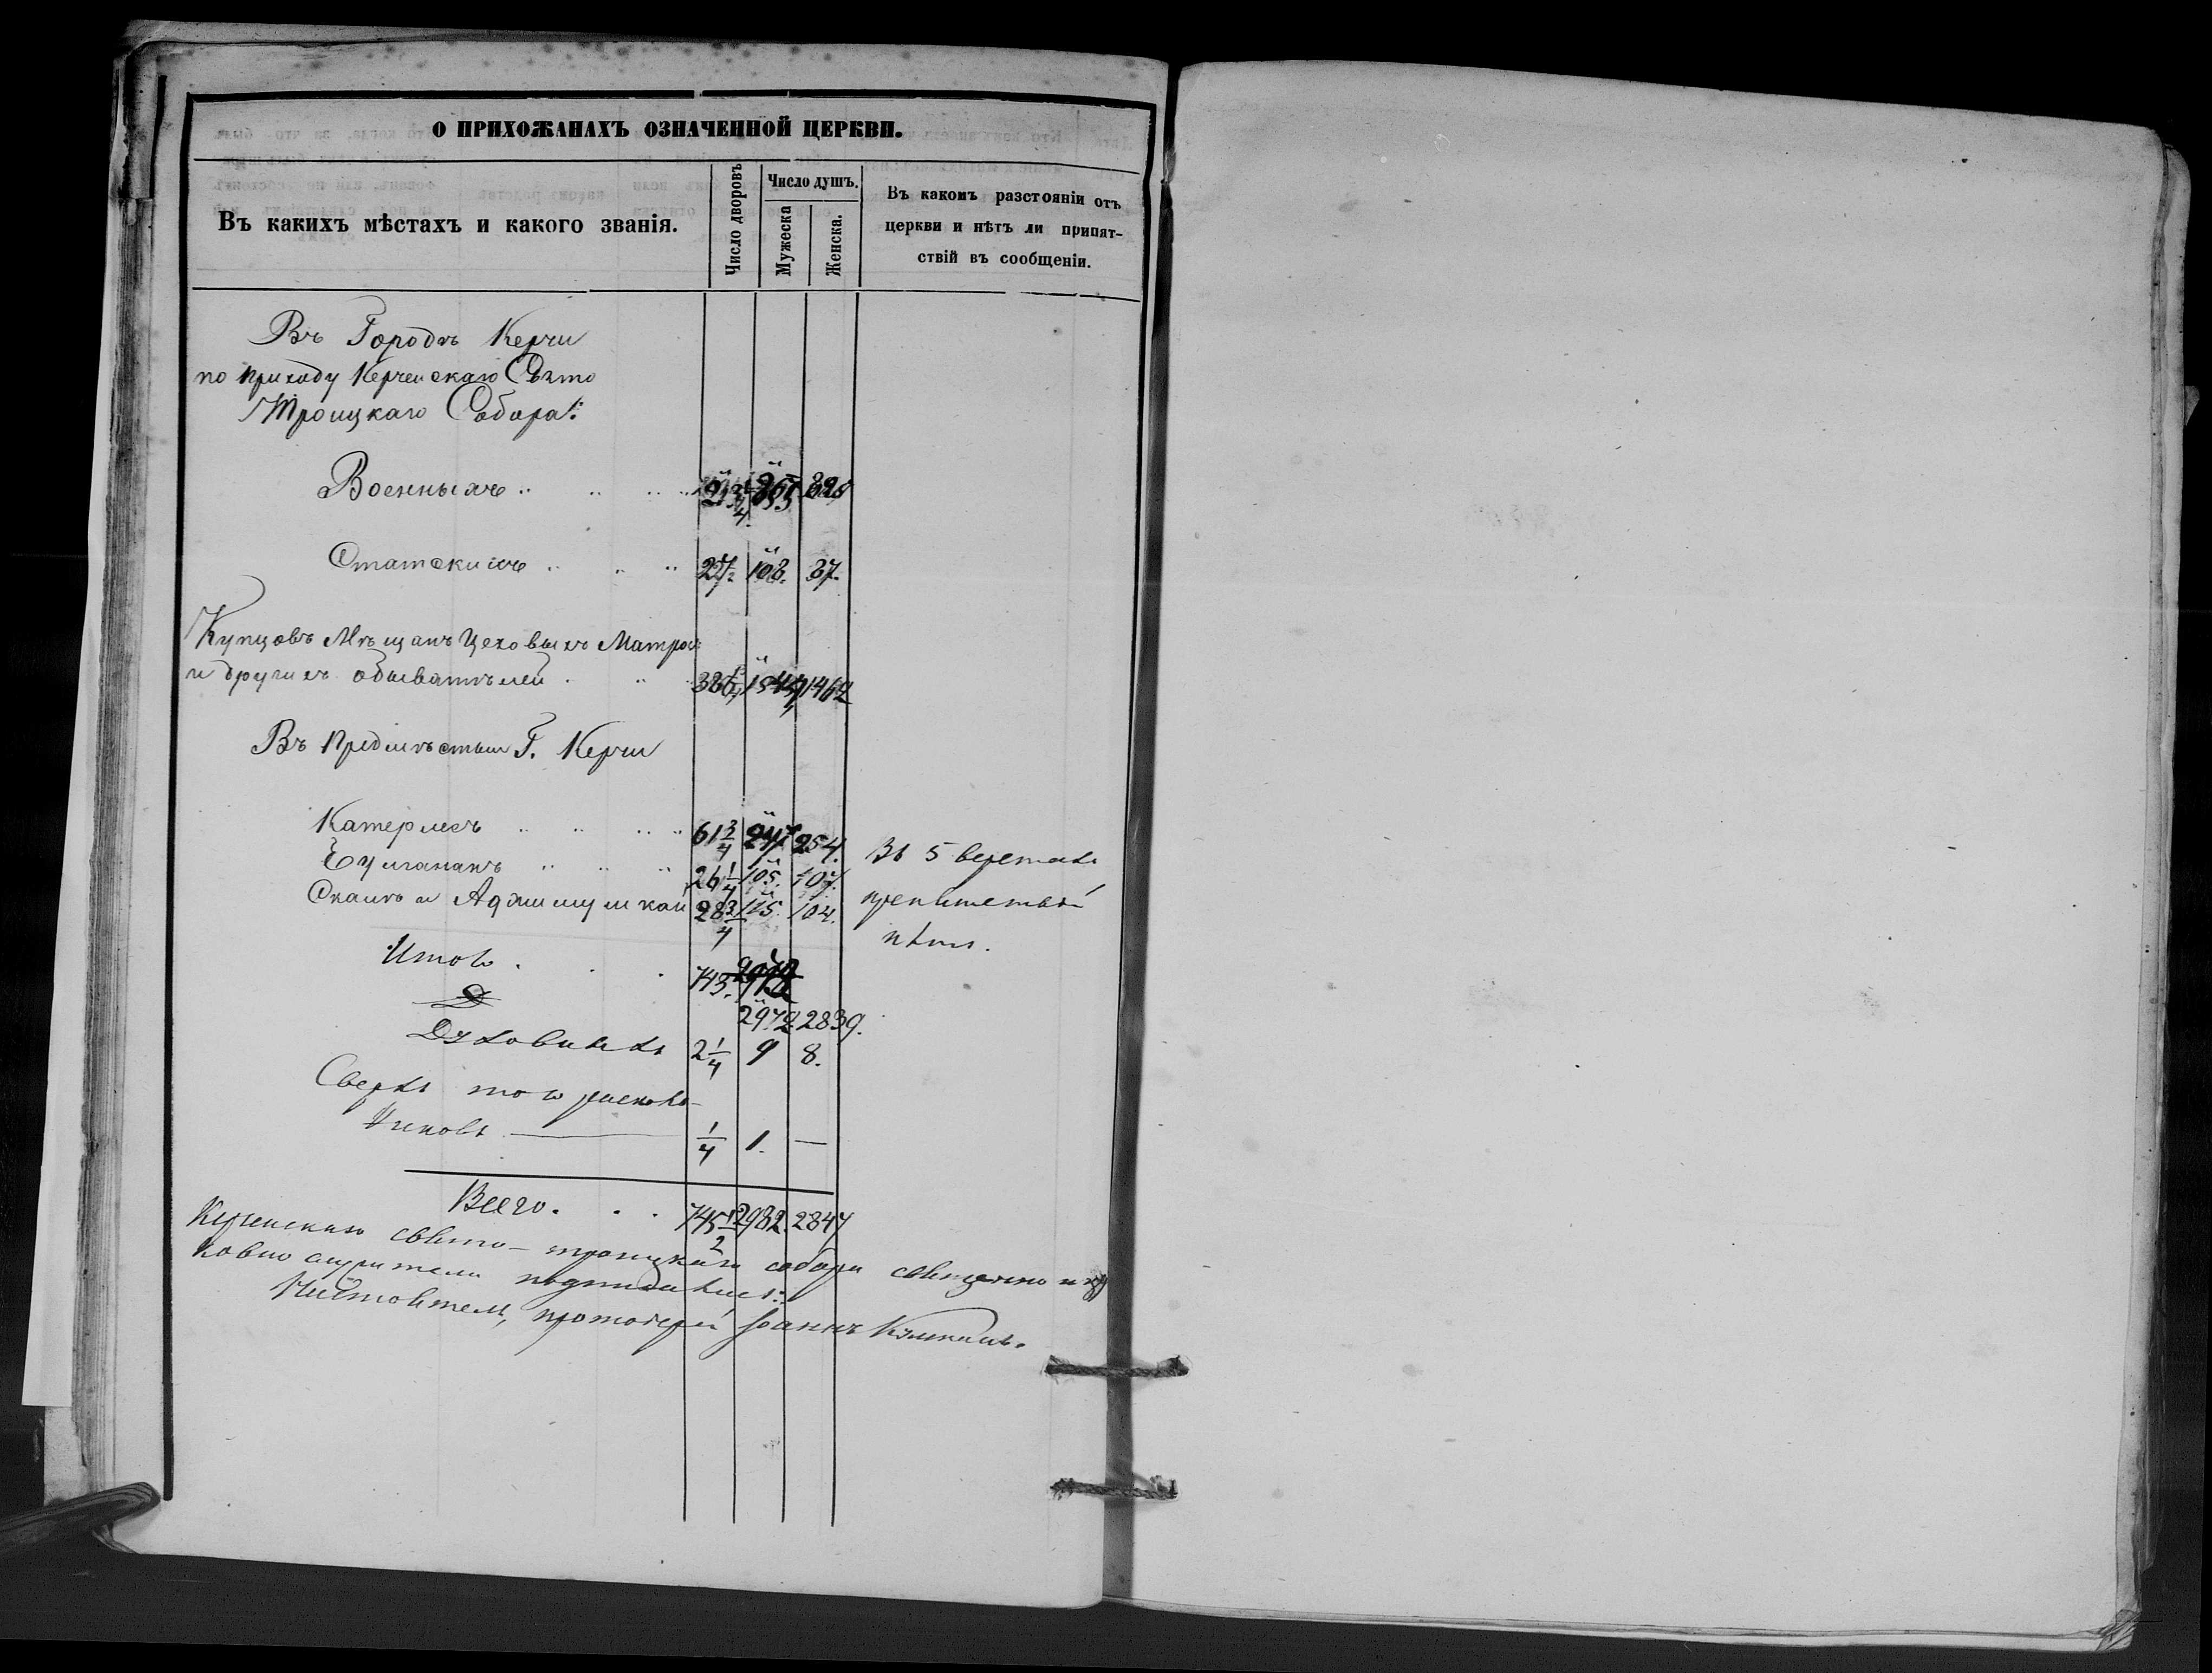 О ПРИХОЖАНАХЪ ОЗНАЧЕННОЙ ЦЕРКВИ.
Въ какихъ мѣстахъ и какого званія.
Число дворовъ
Число душъ.
Мужеска
Женска.
Въ какомъ разстояніи отъ
церкви и нѣтъ ли припят-
ствій въ сообщеніи.
Въ Городѣ Керчи
по приходу Керченскаго Свято
Троицкаго Собора:
Военныхъ
Статскихъ 103. 37.
Купцовъ Мѣщанъ Цеховыхъ
и другихъ обывателей 1462
Въ предмѣстьи Г. Керчи
Катерлесъ 61 3/4 247 254.
Булганакъ 26 1/4 105. 107.
и Аджимушкай 28 3/4 115. 104.
Въ 5 верстахъ
препятствій
нѣтъ.
Итого 743.
2972 2839.
Духовныхъ 2 1/4 9 8.
Сверхъ того расколь-
никовъ — 1/4 1. —
Всего. 745 1/2 2982. 2847
Керченскаго свято-троицкаго собора священно и цер
ковно служители подписались:
Настоятель, протоіерей Іоаннъ